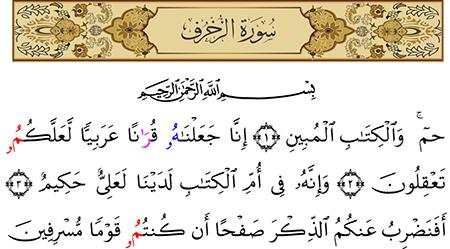 سُورَةُ الزُّخْرُفِ
بِسْمِ ٱللَّهِ ٱلرَّحْمَٰنِ ٱلرَّحِيمِ
حمٓ ۚ وَٱلْكِتَٰبِ ٱلْمُبِينِ ﴿١﴾ إِنَّا جَعَلْنَٰهُۥ قُرَٰنًا عَرَبِيًّا لَّعَلَّكُمُۥ
تَعْقِلُونَ ﴿٢﴾ وَإِنَّهُۥ فِىٓ أُمِّ ٱلْكِتَٰبِ لَدَيْنَا لَعَلِىٌّ حَكِيمٌ ﴿٣﴾
أَفَنَضْرِبُ عَنكُمُ ٱلذِّكْرَ صَفْحًا أَن كُنتُمُۥ قَوْمًا مُّسْرِفِينَ